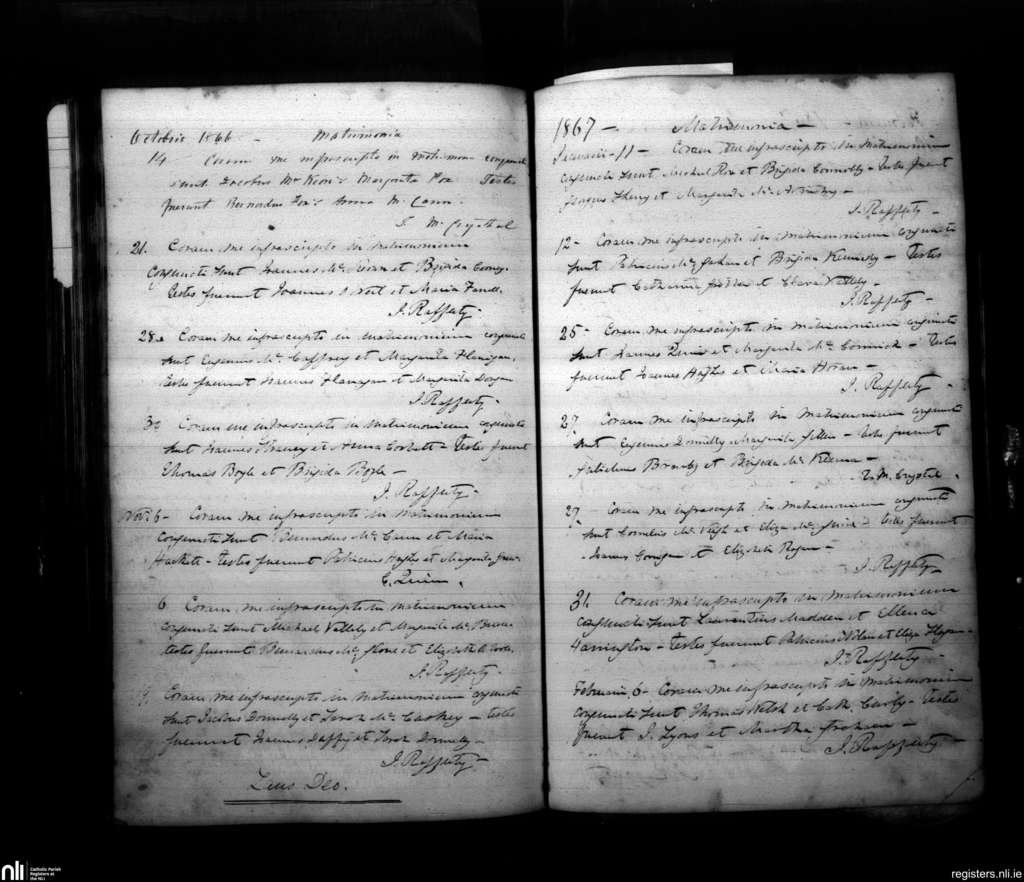 Octobris 1866 - Matrimonia
14 Coram me infrascripto in matrimon conjuncti
sunt Jacobus McKeon & Margarita Fox Testes
fuerunt Bernardus Fox & Anna McCann.
21. Coram me infrascripto in matrimonium
conjuncti sunt Joannes Mc et Brigida
testes fuerunt Joannes et Maria
J. Rafferty -
28. Coram me infrascripto in matrimonium conjuncti
sunt Eugenius McCaffrey et Margarita Flanigan,
testes fuerunt Joannes Flanagan et Margarita
J. Rafferty -
30 Coram me infrascripto in matrimonium conjuncti
sunt Joannes et Anna Corbett - Testes fuerunt
Thomas Boyle et Brigida Boyle -
J. Rafferty -
Nov. 6 - Coram me infrascripto in matrimonium
conjuncti sunt Bernardus McCann et Maria
Hackett - Testes fuerunt Patricius Hughes et Margarita
E. Quinn.
6 Coram me infrascripto in matrimonium
conjuncti sunt Michael Vallely et Margarita Mc
testes fuerunt Bernardus Mc et Elizabeth
J. Rafferty -
Coram me infrascripto in matrimonium conjuncti
sunt Donnelly et Sarah McCaskey - testes
fuerunt Joannes Daffy et Sarah Donnelly -
J. Rafferty -
Laus Deo.
1867 - Matrimonia -
Januarii - 11 - Coram me infrascripto in matrimonium
conjuncti sunt Michael et Brigida Connolly - testes fuerunt
et Margarita Mc
J. Rafferty -
12 - Coram me infrascripto in matrimonium conjuncti
sunt Patricius Mc et Brigida Kennedy - Testes
fuerunt Catharina et Clara Vallely -
J. Rafferty -
25 - Coram me infrascripto in matrimonium conjuncti
sunt Joannes Quinn et Margarita McCormick - Testes
fuerunt Joannes Hughes et Maria Horan -
J. Rafferty
27 Coram me infrascripto in matrimonium conjuncti
sunt Eugenius Donnelly Margarita - testes fuerunt
et Brigida McKenna -
27 - Coram me infrascripto in matrimonium conjuncti
sunt Cornelius Mc et Eliza Mc - testes fuerunt
Joannes et Elizabeth Rogan -
J. Rafferty -
31. Coram me infrascripto in matrimonium
conjuncti sunt Laurentius Madden et Ellena
Harrington - testes fuerunt Patricius et Eliza
J. Rafferty -
Februarii, 6 - Coram me infrascripto in matrimonium
conjuncti sunt Thomas Welsh et Cath. - testes
fuerunt J. Lyons et Martha Graham -
J. Rafferty -
nli
Catholic Parish
Registers at
the NLI
registers.nli.ie